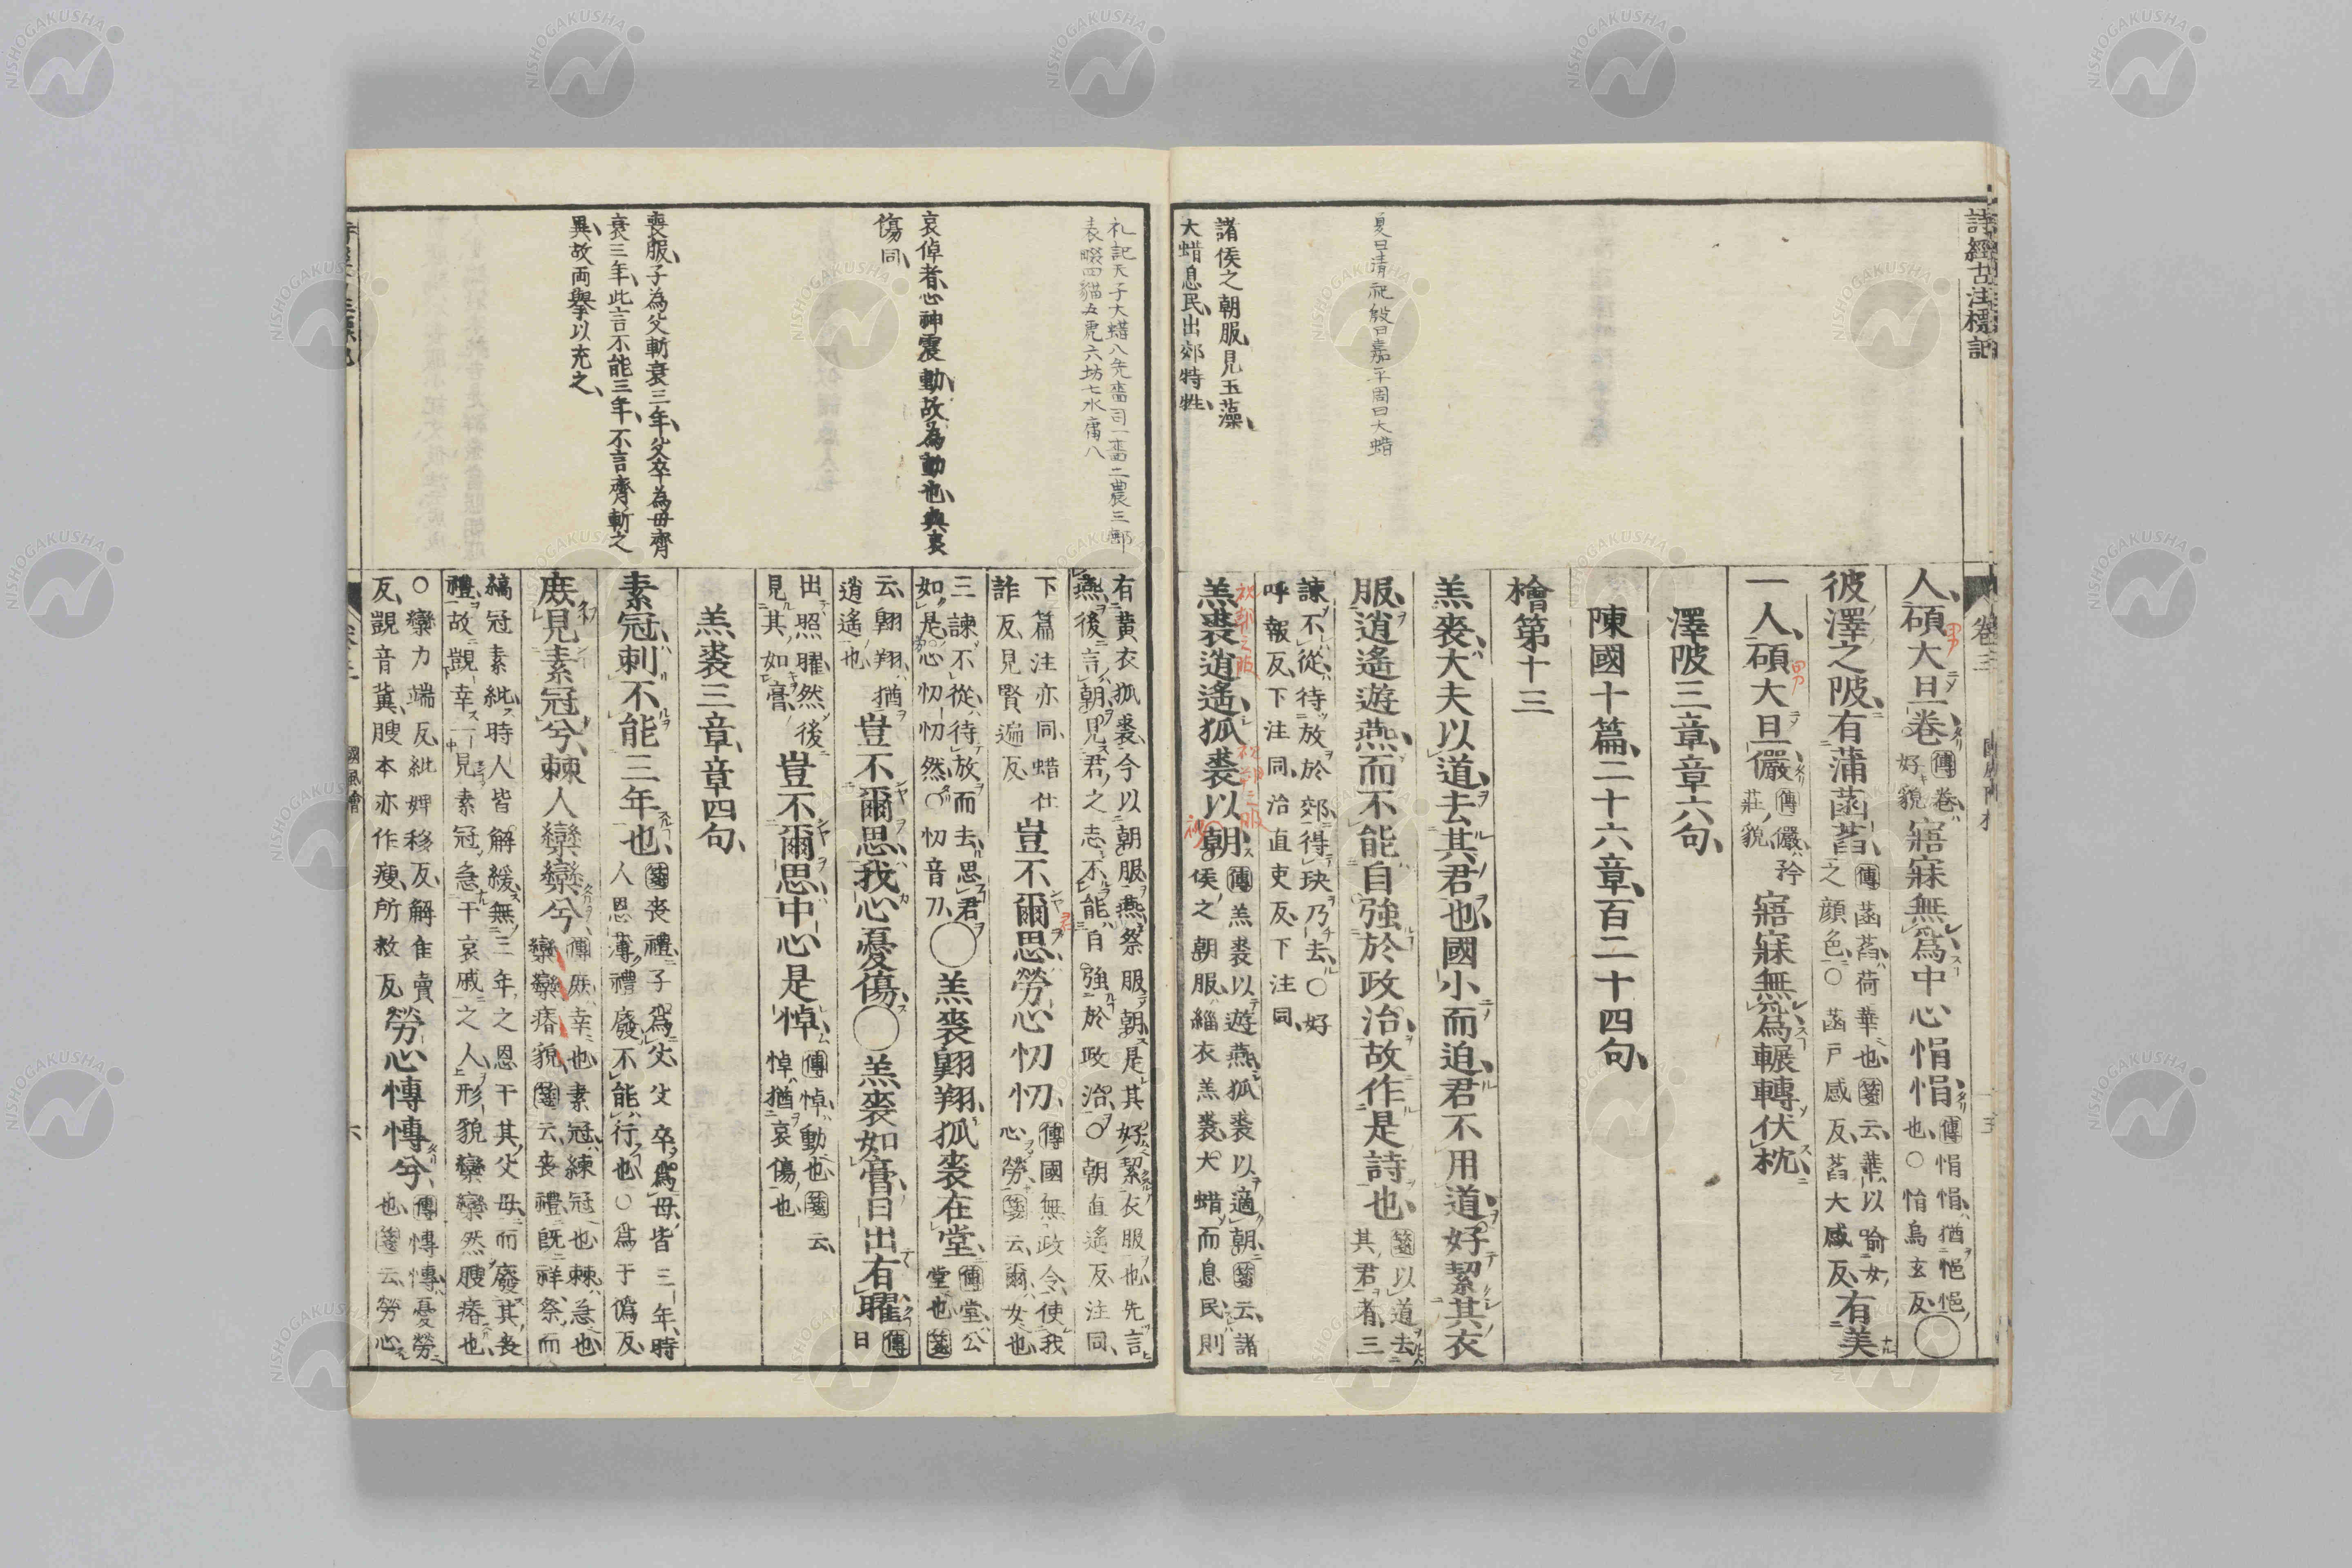 詩經古注標記
卷三
夏曰清祀殷曰嘉平周曰大蜡
諸侯之朝服見玉藻
大蜡息民出郊特牲
人碩大且卷傳卷好貌寤寐無爲中心悁悁傳悁悁猶悒悒也○悁烏玄反○
彼澤之陂有蒲菡萏傳菡萏荷華也箋云華以喻女之顏色○菡戸感反萏大感反有美
一人碩大且儼傳儼矜莊貌寤寐無爲輾轉伏枕
澤陂三章章六句
陳國十篇二十六章百二十四句
檜第十三
羔裘大夫以道去其君也國小而迫君不用道好絜其衣
服逍遙遊燕而不能自強於政治故作是詩也箋以道去其君者三
諫不從待放於郊得玦乃去○好
呼報反下注同治直吏反下注同
羔裘逍遙狐裘以朝傳羔裘以遊燕狐裘以適朝箋云諸
侯之朝服緇衣羔裘大蜡而息民則
礼記天子大蜡八先嗇司一嗇二農三郵
表畷四貓五虎六坊七水庸八
哀悼者心神震動故為動也與哀
傷同
喪服子為父斬衰三年父卒為毋齊
衰三年此言不能三年不言齊斬之
異故両舉以充之
有黄衣狐裘今以朝服燕祭服朝是其好絜衣服也先言
燕後言朝見君之志不能自強於政治○朝直遙反注同
下篇注亦同蜡仕
詐反見賢遍反
豈不爾思勞心忉忉傳國無政令使我
心勞箋云爾女也
三諫不從待放而去思君
如是心忉忉然○忉音刀○羔裘翺翔狐裘在堂傳堂公
堂也箋
云翺翔猶
逍遙也豈不爾思我心憂傷○羔裘如膏日出有曜傳
日
出照曜然後
見其如膏豈不爾思中心是悼傳悼動也箋云
悼猶哀傷也
羔裘三章章四句
素冠刺不能三年也箋喪禮子爲父父卒爲母皆三年時
人恩薄禮廢不能行也○爲于僞反
庶見素冠兮棘人欒欒兮傳庶幸也素冠練冠也棘急也
欒欒瘠貌箋云喪禮既祥祭而
縞冠素紕時人皆解緩無三年之恩于其父母而廢其喪
禮故覬幸一見素冠急于哀戚之人形貌欒欒然膄瘠也
○欒力端反紕婢移反解隹賣
反覬音冀膄本亦作瘦所救反勞心慱慱兮傳慱慱憂勞
也箋云勞心
國風檜
六